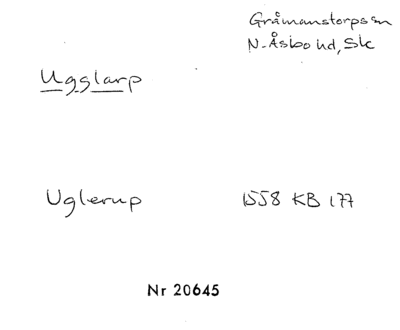 Gråmanstorps sn
N. Åsbo hd, Sk
Ugglarp
Uglerup 1558 KB 177
Nr 20645